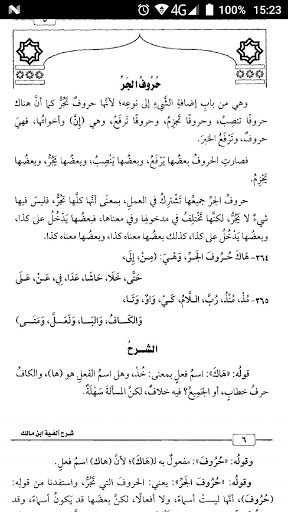 4G 100% 15:23
حُرُوفُ الجَرِّ
وهي من بابِ إضافةِ الشَّيءِ إلى نوعِه؛ لأنَّها حروفٌ تَجُرُّ كما أنَّ هناك
حروفًا تنصِبُ، وحروفًا تجزِمُ، وحروفًا تَرفَعُ، وهي (إنَّ) وأخواتُها، فهيَ
حروفٌ، وتَرْفَعُ الخَبَرَ.
فصارتِ الحُروفُ بعضُها يَرْفَعُ، بعضُها يَنْصِبُ، وبعضُها يَجُرُّ، وبعضُها
يَجْزِمُ.
حروفُ الجَرِّ جميعُها تَشْتَرِكُ في العملِ، بمعنَى أنَّها كلَّها تَجُرُّ، فليسَ فيها
شيءٌ لا يَجُرُّ، لكنَّها تَخْتَلِفُ في مدخولِها وفي معناها، فبعضُها يَدْخُلُ على كذا،
وبعضُها يَدْخُلُ على كذا، كذلك بعضُها معناه كذا، وبعضُها معناه كذا.
٣٦٤- هَاكَ حُرُوفَ الجَرِّ، وَهْيَ: (مِنْ، إِلَى،
حَتَّى، خَلَا، حَاشَا، عَدَا، فِي، عَنْ، عَلَى
٣٦٥- مُذْ، مُنْذُ، رُبَّ، اللَّامُ، كَيْ، وَاوٌ، وَتَا،
وَالكَـافُ، وَالبَـا، وَلَعَـلَّ، وَمَتَـى)
الشـرحُ
قولُهُ: «هَاكَ»: اسمُ فعلٍ بمعنى: خُذْ، وهل اسمُ الفعلِ هو (ها)، والكافُ
حرفُ خطابٍ، أو الجَمِيعُ؟ فيه خلافٌ، لكنَّ المسألةَ سَهْلَةٌ.
شرح ألفية ابن مالك
٦
وقولُهُ: «حُرُوفَ»: مفعولٌ به لـ(هَاكَ)؛ لأنَّ (هاك) اسمُ فعلٍ.
وقولُهُ: «حُرُوفَ الجَرِّ» يعني: الحروفَ التي تَجُرُّ، واستفدنا من قولِهِ: